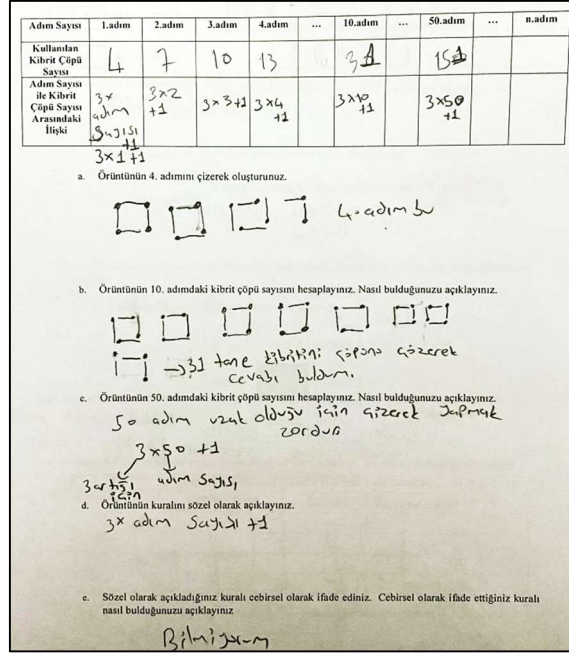 Adım Sayısı 1.adım 2.adım 3.adım 4.adım ... 10.adım ... 50.adım ... n.adım
Kullanılan Kibrit Çöpü Sayısı 4 7 10 13 31 151
Adım Sayısı ile Kibrit Çöpü Sayısı Arasındaki İlişki 3x adım sayısı +1 3x2 +1 3x3+1 3x4 +1 3x10 +1 3x50 +1
3x1+1
a. Örüntünün 4. adımını çizerek oluşturunuz.
4. adım bu
b. Örüntünün 10. adımdaki kibrit çöpü sayısını hesaplayınız. Nasıl bulduğunuzu açıklayınız.
→ 31 tane kibritini çöpünü çizerek
cevabı buldum.
c. Örüntünün 50. adımdaki kibrit çöpü sayısını hesaplayınız. Nasıl bulduğunuzu açıklayınız.
50 adım uzak olduğu için çizerek yapmak
zordur
3x50 +1
3 artığı için adım sayısı
d. Örüntünün kuralını sözel olarak açıklayınız.
3x adım sayısı +1
e. Sözel olarak açıkladığınız kuralı cebirsel olarak ifade ediniz. Cebirsel olarak ifade ettiğiniz kuralı
nasıl bulduğunuzu açıklayınız
Bilmiyorum